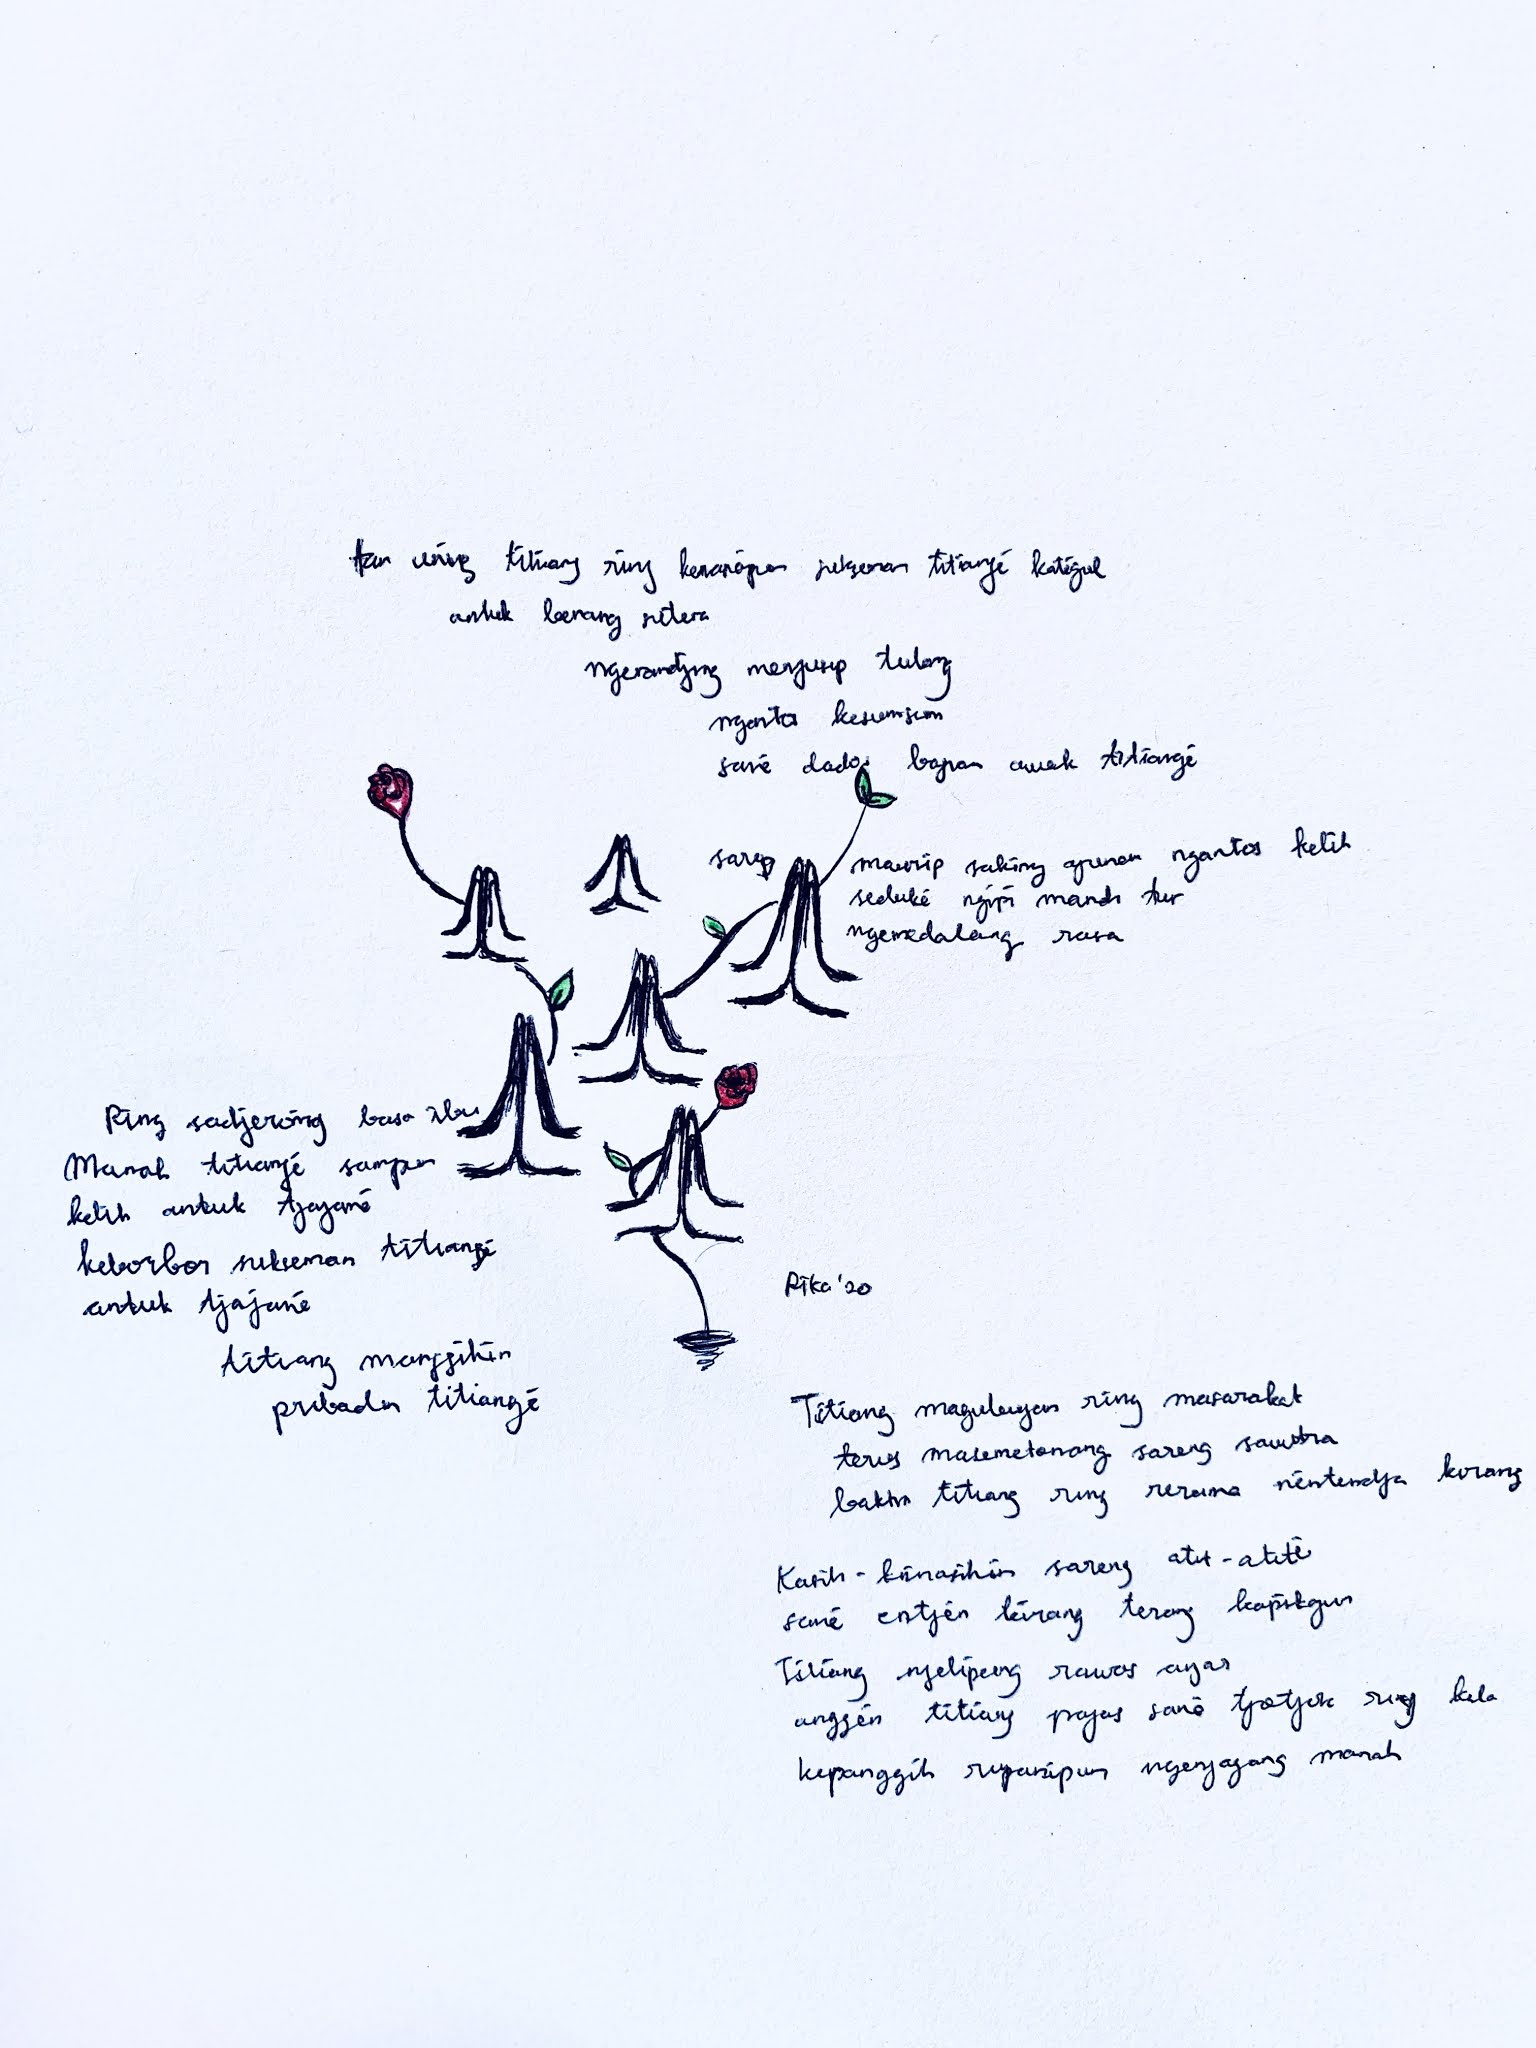 tan uning titiang ring kenaripun sukseman titiangé kategul
antuk benang sutera
ngerandjing menjusip tulang
ngantos kesumsum
sané dados bagian awak titiangé
maurip saking ngantos kelih
seduké ngipi manah tur
ngemedalang rasa
Ring sadjeroning basa ibu
Manah titiangé sampun
kelih antuk tjajané
keborbor sukseman titiangé
antuk tjajané
titiang manggihin
pribadin titiangé
Rika '20
Titiang maguleyan ring masarakat
terus masemetonang sareng saudara
baktin titiang ring rerama néntendja kirang
Kasih-kinasihin sareng alit-alité
sané entjén kirang terang kapisgun
Titiang njelipeng rawos anjar
anggén titiang pajas sané tjotjok ring kala
kepanggih rupanipun ngenjagang manah